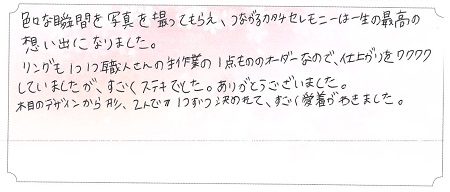 色々な瞬間を写真を撮ってもらえ、つながるカタチセレモニーは一生の最高の
想い出になりました。
リングも1つ1つ職人さんの手作業の1点もののオーダーなので、仕上がりをワクワク
していましたが、すごくステキでした。ありがとうございました。
木目のデザインから形、2人で1つずつ決めれて、すごく愛着がわきました。